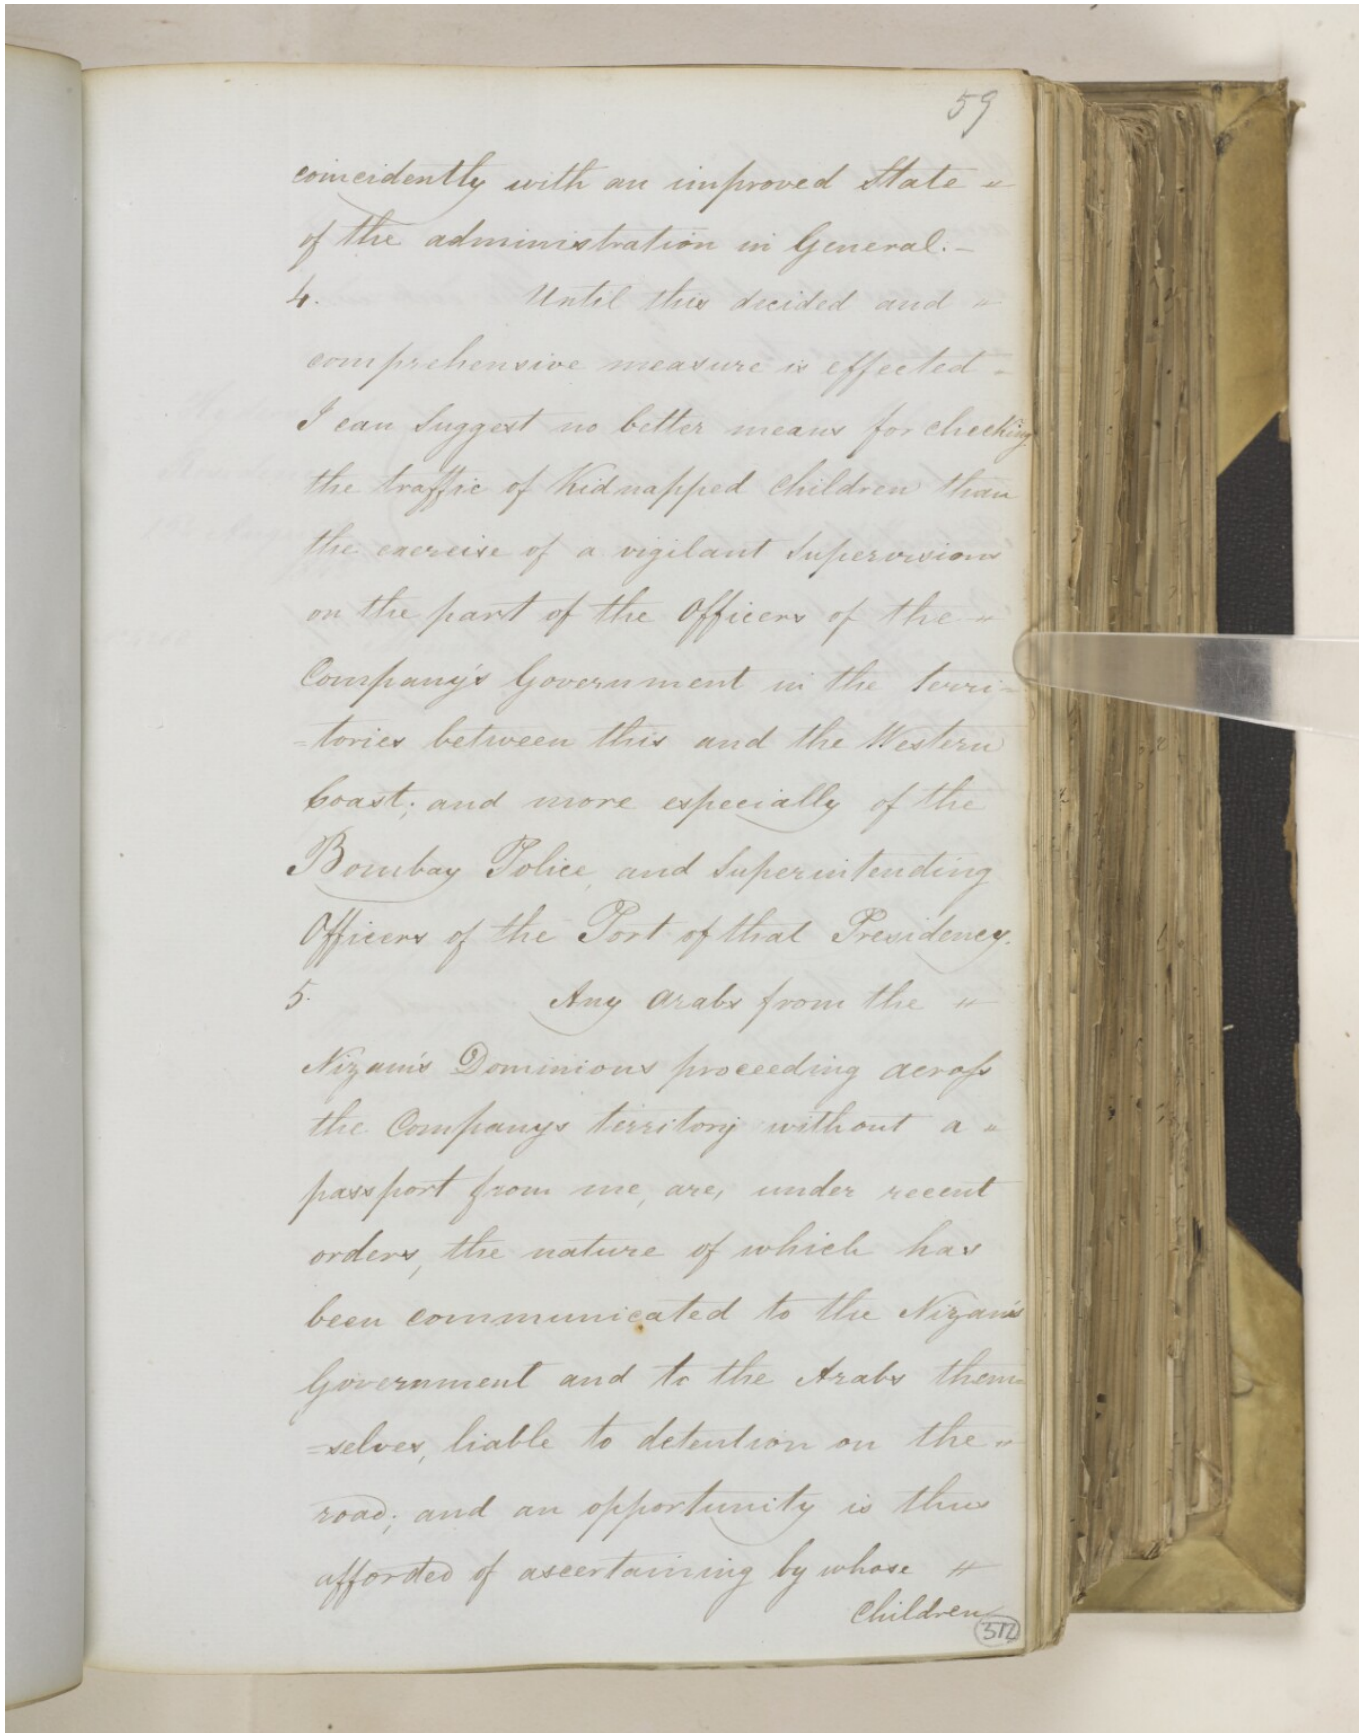 59
coincidently with an improved State "
of the administration in General. -
4. Until this decided and "
comprehensive measure is effected -
I can Suggest no better means for checking
the traffic of Kidnapped Children than
the exercise of a vigilant Supervision
on the part of the Officers of the "
Company's Government in the terri=
=tories between this and the Western
Coast; and more especially of the
Bombay Police, and Superintending
Officers of the Port of that Presidency.
5. Any Arabs from the "
Nizam's Dominions proceeding across
the Companys territory without a "
passport from me, are, under recent
orders, the nature of which has
been communicated to the Nizam's
Government and to the Arabs them=
=selves, liable to detention on the "
road; and an opportunity is thus
afforded of ascertaining by whose "
Children
312